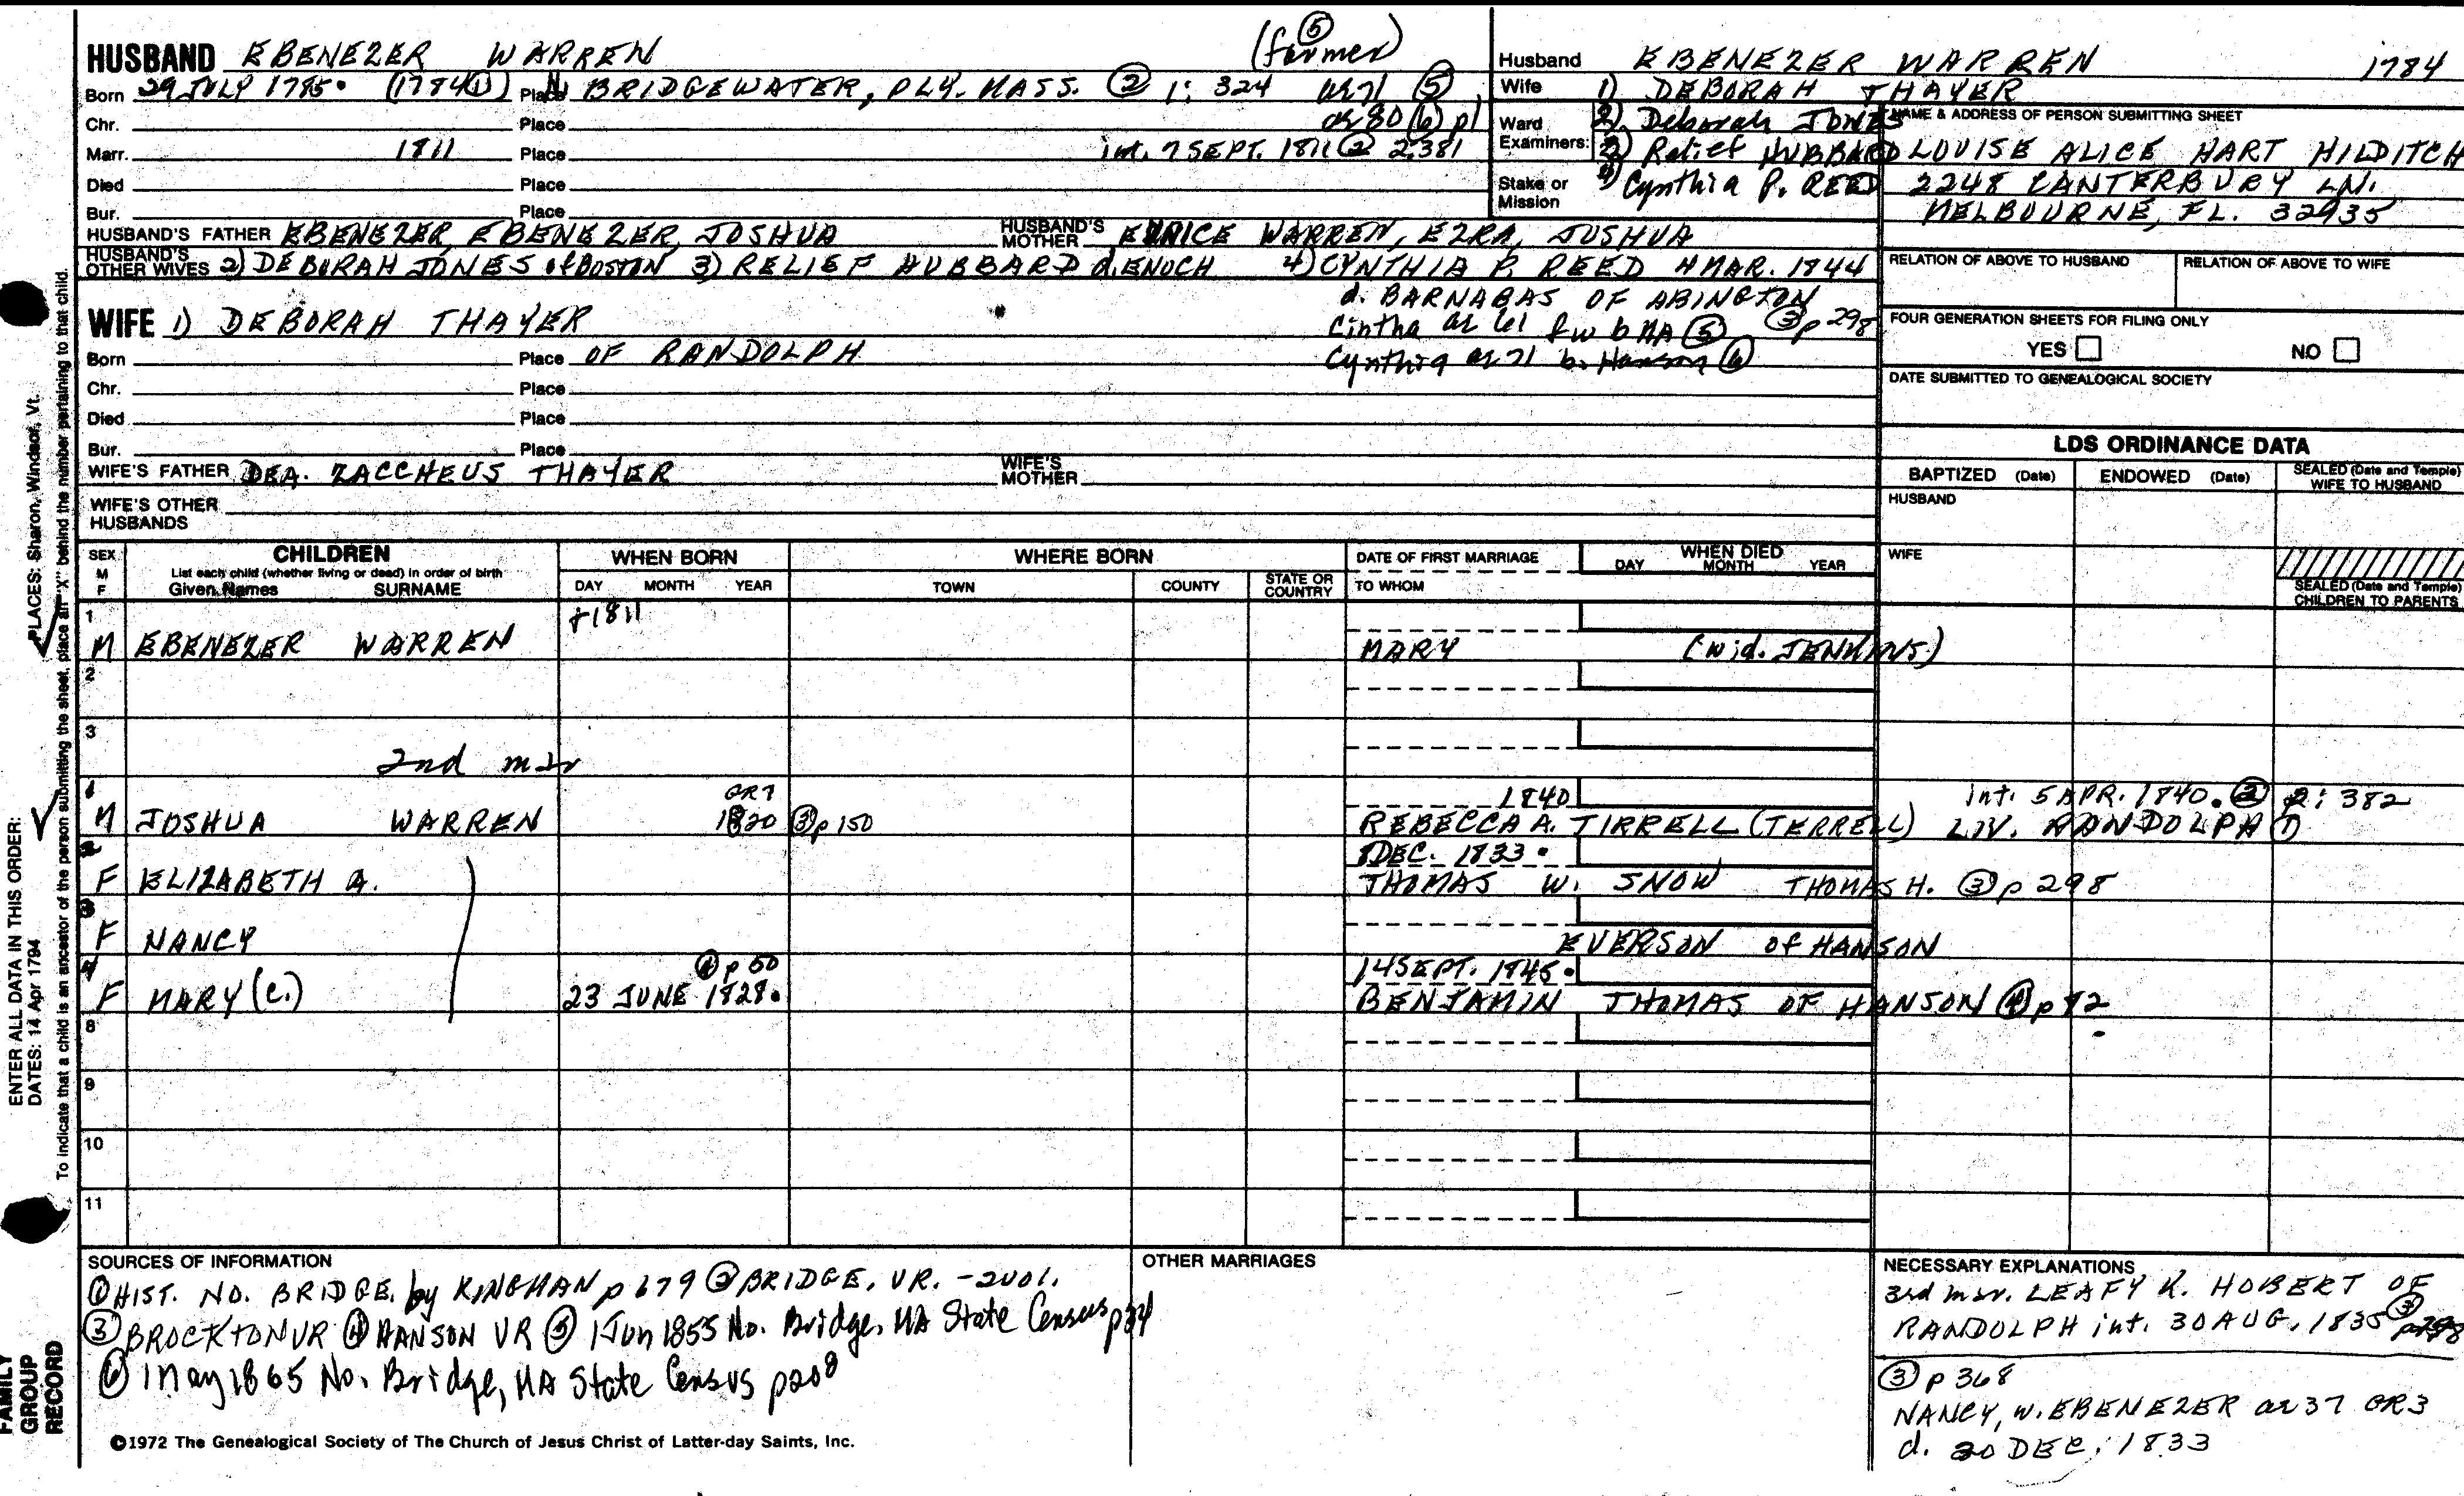 (farmer) ⑤
HUSBAND EBENEZER WARREN
Born 29 JULY 1785. (1784①) Place N BRIDGEWATER, PLY. MASS. ② 1: 324 ae 71 ⑤
Chr. Place ae 80 ⑥ p1
Marr. 1811 Place int. 7 SEPT. 1811 ② 2:381
Died Place
Bur. Place
HUSBAND'S FATHER EBENEZER, EBENEZER, JOSHUA HUSBAND'S MOTHER EUNICE WARREN, EZRA, JOSHUA
HUSBAND'S OTHER WIVES 2) DEBORAH JONES of BOSTON 3) RELIEF HUBBARD d. ENOCH 4) CYNTHIA P. REED 4 MAR. 1844
d. BARNABAS OF ABINGTON
③ p 298
Cintha ae 61 f w b MA ⑤
Cynthia ae 71 b. Hanson ⑥
Husband EBENEZER WARREN 1784
Wife 1) DEBORAH THAYER
Ward Examiners:
2) Deborah JONES
3) Relief HUBBARD
4) Cynthia P. REED
Stake or Mission
NAME & ADDRESS OF PERSON SUBMITTING SHEET
LOUISE ALICE HART HILDITCH
2248 CANTERBURY LN.
MELBOURNE, FL. 32935
RELATION OF ABOVE TO HUSBAND RELATION OF ABOVE TO WIFE
FOUR GENERATION SHEETS FOR FILING ONLY
YES NO
DATE SUBMITTED TO GENEALOGICAL SOCIETY
WIFE 1) DEBORAH THAYER
Born Place OF RANDOLPH
Chr. Place
Died Place
Bur. Place
WIFE'S FATHER DEA. ZACCHEUS THAYER WIFE'S MOTHER
WIFE'S OTHER HUSBANDS
LDS ORDINANCE DATA
BAPTIZED (Date) ENDOWED (Date) SEALED (Date and Temple) WIFE TO HUSBAND
HUSBAND
WIFE
SEALED (Date and Temple) CHILDREN TO PARENTS
SEX M F
CHILDREN
List each child (whether living or dead) in order of birth
Given Names SURNAME
WHEN BORN
DAY MONTH YEAR
WHERE BORN
TOWN COUNTY STATE OR COUNTRY
DATE OF FIRST MARRIAGE
TO WHOM
WHEN DIED
DAY MONTH YEAR
1 +1811
M EBENEZER WARREN MARY (wid. JENKINS)
2
3
2nd mar
1 GR7 1840 int. 5 APR. 1840. ② 2: 382
M JOSHUA WARREN 1820 ③ p 150 REBECCA A. TIRRELL (TERRELL) LIV. RANDOLPH ①
2 1 DEC. 1833.
F ELIZABETH A. THOMAS W. SNOW THOMAS H. ③ p 298
3
F NANCY EVERSON of HANSON
4 ④ p 50 14 SEPT. 1845.
F MARY (C.) 23 JUNE 1828. BENJAMIN THOMAS OF HANSON ④ p 82
8
9
10
11
SOURCES OF INFORMATION
① HIST. NO. BRIDGE. by KINGMAN p 679 ② BRIDGE. VR. - 2 vol.
③ BROCKTON VR ④ HANSON VR ⑤ 1 Jun 1855 No. Bridge, MA State Census p34
⑥ 1 May 1865 No. Bridge, MA State Census p208
OTHER MARRIAGES
NECESSARY EXPLANATIONS
3rd mar. LEAFY K. HOBERT OF
RANDOLPH int. 30 AUG. 1835 ③ p298
③ p 368
NANCY, w. EBENEZER ae 37 GR3
d. 20 DEC. 1833
©1972 The Genealogical Society of The Church of Jesus Christ of Latter-day Saints, Inc.
PLACES: Sharon, Windsor, Vt.
To indicate that a child is an ancestor of the person submitting the sheet, place an "X" behind the number pertaining to that child.
ENTER ALL DATA IN THIS ORDER:
DATES: 14 Apr 1794
FAMILY
GROUP
RECORD